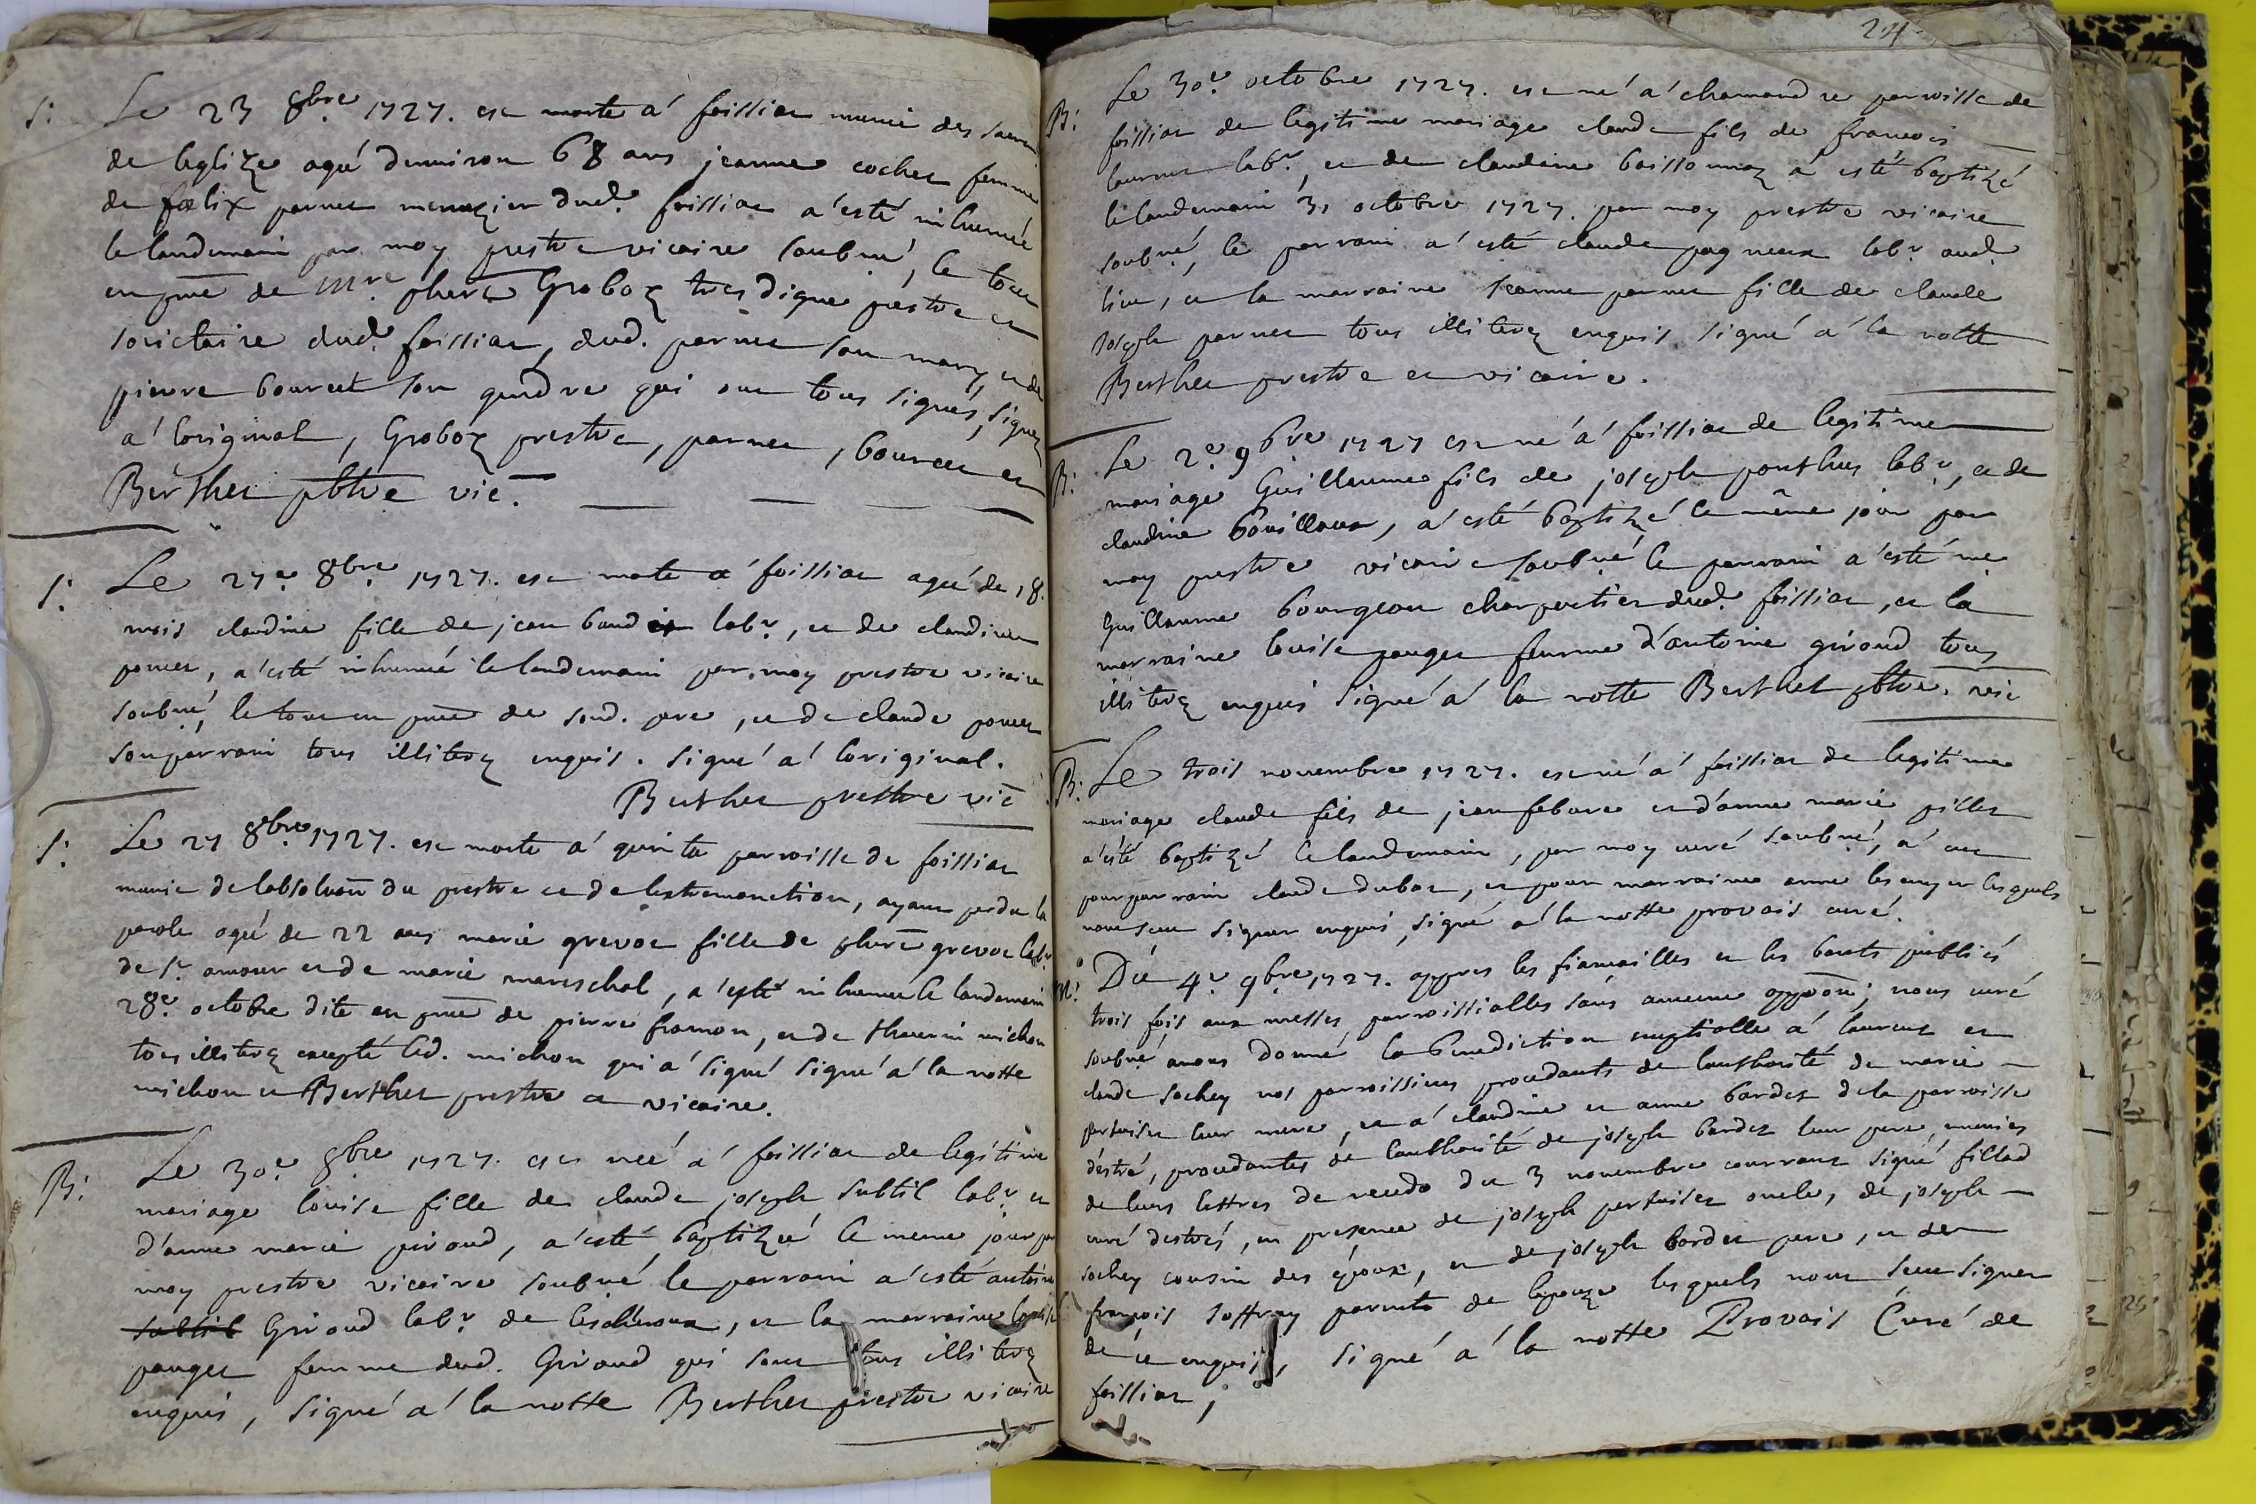 S: Le 23 8bre. 1727. est morte a' foissiat munie des sacremᵗ
de leglize agé denviron 68 ans jeanne cochet femme
de fœlix parnet menuzier dud. foissiat a'esté inhumée
le landemain par moy prestre vicaire soubné, le tout
en pnce de mre. phert Groboz tres digne prestre et
socictaire dud. foissiat, dud. parnet son mary, et de
pierre bourcet son gendre qui ont tous signés, signez
a' loriginal, Groboz prestre, parnet, bourcet et
Berthet pbtre vic.
S: Le 27e 8bre 1727. est morte a' foissiat agé de 18.
mois claudine fille de jean baudet labr, et de claudine
poncet, a'esté inhumé le landemain par moy prestre vicaire
soubné, le tout en pnce de sond. pere, et de claude poncet
son parrain tous illiterez enquis. signé a' loriginal.
Berthet prestre vic
S: Le 27 8bre 1727. est morte a' quinte parroisse de foissiat
munie de labsoluon du prestre et de lextremonction, ayant perdu la
parole agé de 22 ans marie grevat fille de phert grevat labr
de St amour et de marie mareschal, a'esté inhumée le landemain
28e. octobre dite en pnce de pierre framon, et de thevenin michon
tous illiterez excepté led. michon qui a' signé signé a' la notte
michon et Berthet prestre et vicaire.
B: Le 30e 8bre 1727. est neé a' foissiat de legitime
mariage louise fille de claude joseph subtil labr et
d'anne marie piroud, a'esté baptizeé le meme jour par
moy prestre vicaire soubné le parrain a'esté antoine
subtil Giroud labr de lescheroux, et la marraine louise
pauget femme dud. Giroud qui sont tous illiterez
enquis, signé a' la notte Berthet prestre vicaire
24
B: Le 30e. octobre 1727. est né a' chamandre parroisse de
foissiat de legitime mariage claude fils de francois
laurent labr, et de claudine boissonnaz a' esté baptizé
le landemain 31 octobre 1727. par moy prestre vicaire
soubné, le parrain a' esté claude pagneux labr aud.
lieu, et la marraine jeanne parnet fille de claude
joseph parnet tous illiterez enquis signé a' la notte
Berthet prestre et vicaire.
B: Le 2e. 9bre 1727 est né a' foissiat de legitime
mariage Guillaume fils de joseph ponthus labr, et de
claudine bouilloux, a' esté baptizé le même jour par
moy prestre vicaire soubné le parrain a'esté me
Guillaume bourgeon charpentier dud. foissiat, et la
marraine louise pauget femme d'antoine giroud tous
illiterez enquis signé a' la notte Berthet pbtre. vic
B: Le trois novembre 1727. est né a' foissiat de legitime
mariage claude fils de jean febvre et d'anne marie pillet
a'esté baptizé le landemain, par moy curé soubné, a' eut
pour parrain claude dubat, et pour marraine anne lescuyer lesquels
nont sceu signer enquis, signé a' la notte provais curé.
M: Du 4e 9bre 1727. appres les fiancailles et les bants publiés
trois fois aux messes parroissialles sans aucune oppoon; nous curé
soubné avons donné la benediction nuptialle a' laurent et
claude sochey nos parroissiens procedants de lauthorité de marie
pertuiset leur mere, et a' claudine et anne bardet de la parroisse
d'estré, procedantes de lauthorité de joseph bardet leur pere munies
de leurs lettres de recedo du 3 novembre courrant signé fillod
curé destrés, en presence de joseph pertuiset oncle, de joseph
sochey cousin des époux, et de joseph bardet pere, et de
françois soffray parents de lepouze lesquels nont sceu signer
de ce enquis, signé a' la notte Provais Curé de
foissiat;